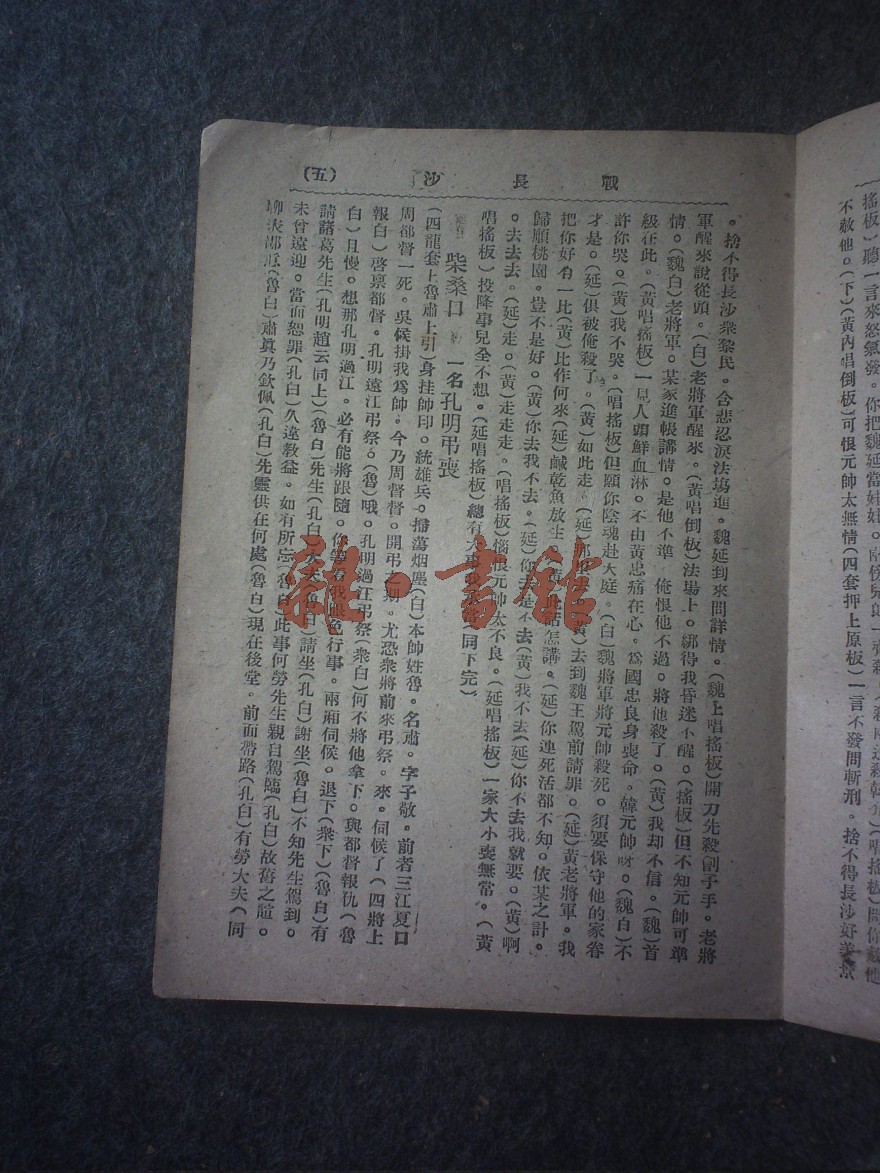 搖板)聽一言來怒氣發。你把魏延當
不赦他。(下)(黃內唱倒板)可恨元帥太無情(四套押上原板)一言不發問斬刑。捨不得長沙好
戰長沙 (五)
。捨不得長沙衆黎民。含悲忍淚法場進。魏延到來問詳情。(魏上唱搖板)開刀先殺劊子手。老將
軍醒來說從頭。(白)老將軍醒來。(黃唱倒板)法場上。綁得我昏迷不醒。(搖板)但不知元帥可準
情。(魏白)老將軍。某家進帳講情。是他不準 俺恨他不過。將他殺了。(黃)我却不信。(魏)首
級在此。(黃唱搖板)一見人頭鮮血淋。不由黃忠痛在心。爲國忠良身喪命。韓元帥呀。(魏白)不
許你哭。(黃)我不哭。(唱搖板)但願你陰魂赴大庭。(白)魏將軍將元帥殺死。須要保守他的家眷
才是。(延)俱被俺殺了。(黃)如此走。(延)那 (黃)去到魏王駕前請罪。(延)黃老將軍。我
把你好有一比(黃)比作何來(延)鹹乾魚放生 (黃)此話怎講。(延)你連死活都不知。依某之計。
歸順桃園。豈不是好。(黃)你去我不去。(延)你去是不去(黃)我不去(延)你不去我就要。(黃)啊
。去去去。(延)走。(黃)走走走。(唱搖板)惱恨元帥太不良。(延唱搖板)一家大小喪無常。(黃
唱搖板)投降事兒全不想。(延唱搖板)總有大事我 (同下完)
柴桑口 一名孔明弔喪
(四龍套上魯肅上引)身挂帥印。統雄兵。掃蕩烟塵(白)本帥姓魯。名肅。字子敬。前者三江夏口
周都督一死。吳候掛我爲帥。今乃周督督。開弔之期。尤恐衆將前來弔祭。來。伺候了(四將上
報白)啓禀都督。孔明遠江弔祭。(魯)哦。孔明過江弔祭(衆白)何不將他拿下。與都督報仇(魯
白)且慢。想那孔明過江。必有能將跟隨。你等看我眼色行事。兩廂伺候。退下(衆下)(魯白)有
請諸葛先生(孔明趙云同上)(魯白)先生(孔白)大夫(魯白)請坐(孔白)謝坐(魯白)不知先生駕到。
未曾遠迎。當面恕罪(孔白)久違教益。如有所忘(魯白)此事何勞先生親自駕臨(孔白)故舊之誼。
(魯白)肅眞乃欽佩(孔白)先靈供在何處(魯白)現在後堂。前面帶路(孔白)有勞大夫(同
雜·書館